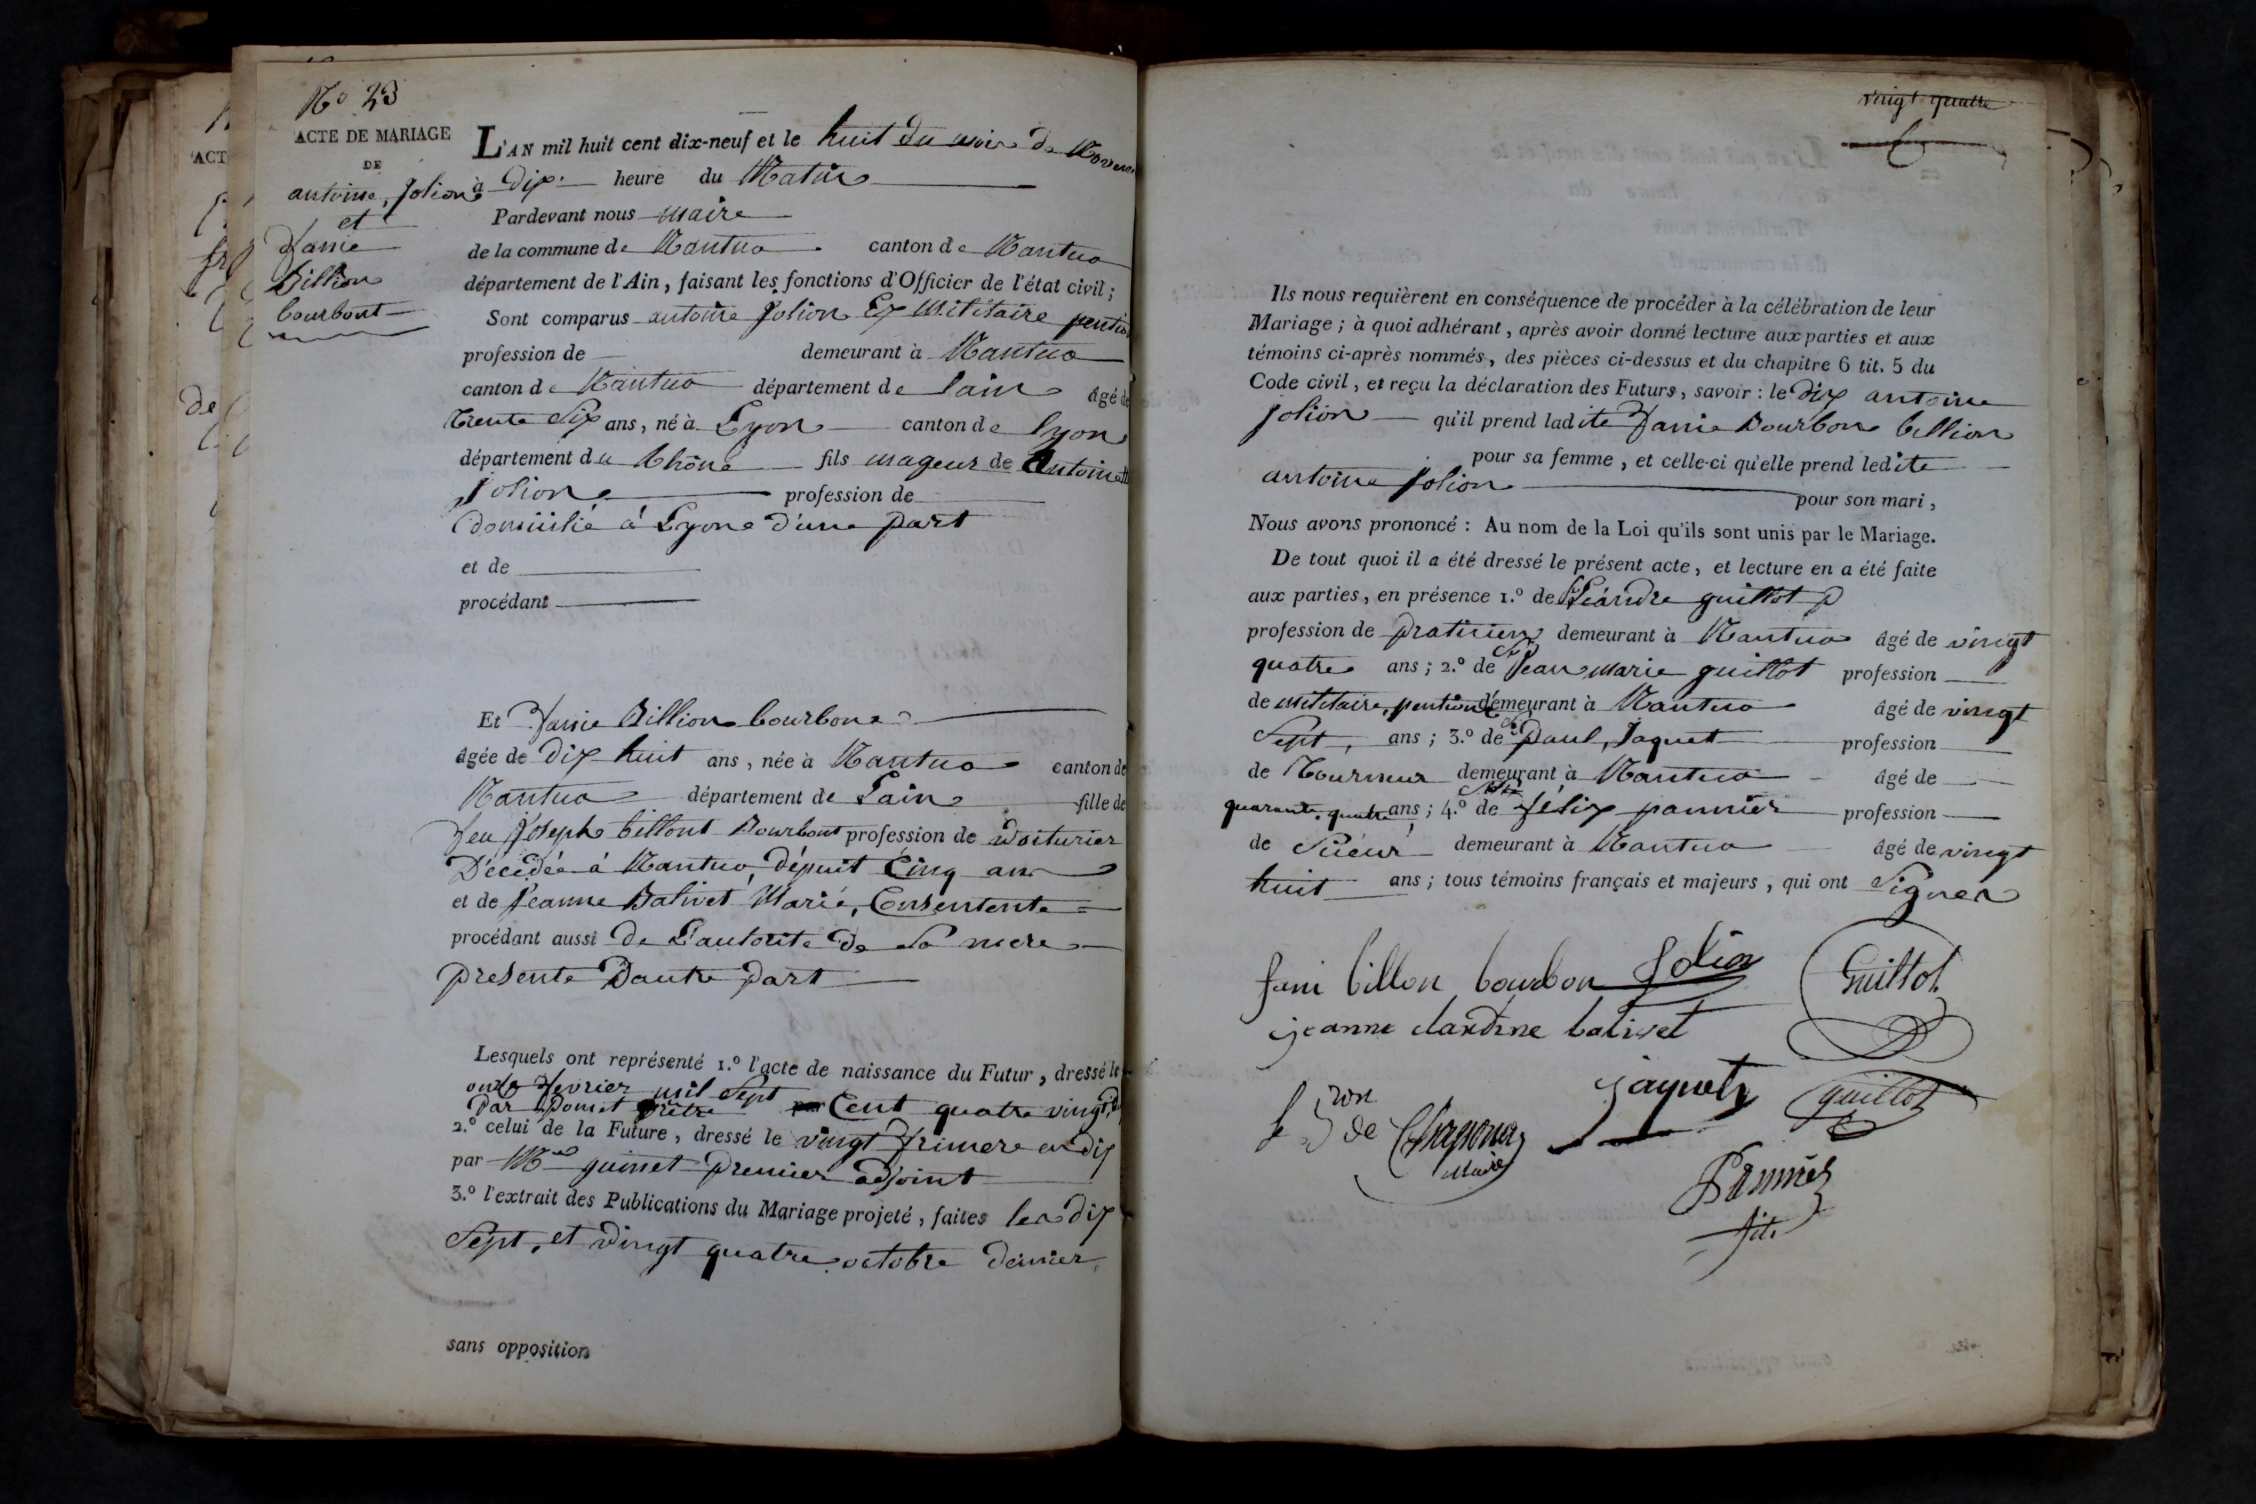 No 23
ACTE DE MARIAGE
DE
antoine, Jolion
et
fanie
Billion
bourbont
L'AN mil huit cent dix-neuf et le huit du mois de Novem
à Dix heure du Matin
Pardevant nous maire
de la commune de Nantua canton de Nantua
département de l'Ain, faisant les fonctions d'Officier de l'état civil;
Sont comparus antoine Jolion Ex Militaire pentio
profession de demeurant à Nantua
canton de Nantua département de lain âgé de
trente Six ans, né à Lyon canton de lyon
département du Rhône fils mageur de Antoine
Jolion profession de
domicilié à Lyon d'une part
et de
procédant
Et fanie Billion bourbon
âgée de dix huit ans, née à Nantua canton de
Nantua département de Lain fille de
feu Joseph billont Bourbont profession de Voiturier
Décédée à Nantua, dépuit Cinq ans
et de Jeanne Balivet Marié, Consentente
procédant aussi de Lautorité de La mere
presente Dautre part
Lesquels ont représenté 1.º l'acte de naissance du Futur, dressé le
onze fevrier mil Sept
Par prêtre Cent quatre vingt
2.º celui de la Future, dressé le vingt frimere an dix
par Mr guinet premier adjoint
3.º l'extrait des Publications du Mariage projeté, faites les dix
Sept, et vingt quatre octobre dernier
sans opposition
ACT
de
vingt quatre
Ils nous requièrent en conséquence de procéder à la célébration de leur
Mariage; à quoi adhérant, après avoir donné lecture aux parties et aux
témoins ci-après nommés, des pièces ci-dessus et du chapitre 6 tit. 5 du
Code civil, et reçu la déclaration des Futurs, savoir: le dix antoine
jolion qu'il prend ladite fanie Bourbon billion
pour sa femme, et celle-ci qu'elle prend ledite
antoine jolion pour son mari,
Nous avons prononcé: Au nom de la Loi qu'ils sont unis par le Mariage.
De tout quoi il a été dressé le présent acte, et lecture en a été faite
aux parties, en présence 1.º de Léandre guillot
profession de praticien demeurant à Nantua âgé de vingt
quatre ans; 2.º de Jean marie guillot profession
de militaire, pentioné demeurant à Nantua âgé de vingt
Sept, ans; 3.º de Paul, Jaquet profession
de Tourneur demeurant à Nantua âgé de
quarante quatre ans; 4.º de félix pannier profession
de Scieur demeurant à Nantua âgé de vingt
huit ans; tous témoins français et majeurs, qui ont Signer
fani billon bourbon Jolion Guillot
jeanne claudine balivet
jaquet guillot
le Bon de
Maire
Pannier
fils